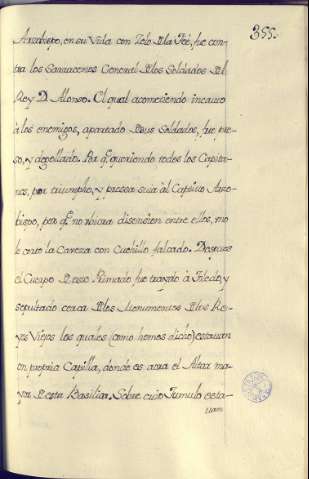 355.
Arzobispo, en su Vida con Zelo D la Fé, fue con-
tra los Sarracenos General D los Soldados Dl
Rey D. Alonso. El qual acometiendo incauto
à los enemigos, apartado D sus Soldados, fue pre-
so, y degollado. Por q̃ queriendo todos los Capita-
nes, por triumpho, y presea suia àl Captivo Arzo-
bispo, por q̃ no hubiera disension entre ellos, uno
le corto la Caveza con Cuchillo falcado. Despues
el Cuerpo D este Primado fue traydo à Toledo, y
sepultado cerca D los Monumentos D los Re-
yes Viejos los quales (como hemos dicho) estavan
en propria Capilla, donde es aora el Altar ma-
yor D esta Basilica. Sobre cuio Tumulo esta-
uam